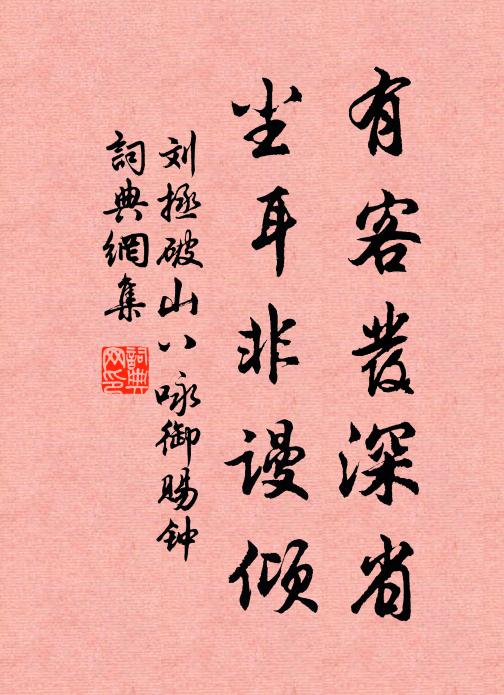 有客發深省
尘耳非谩倾
刘拯破山八咏御赐钟
詞典網集
詞典
网印